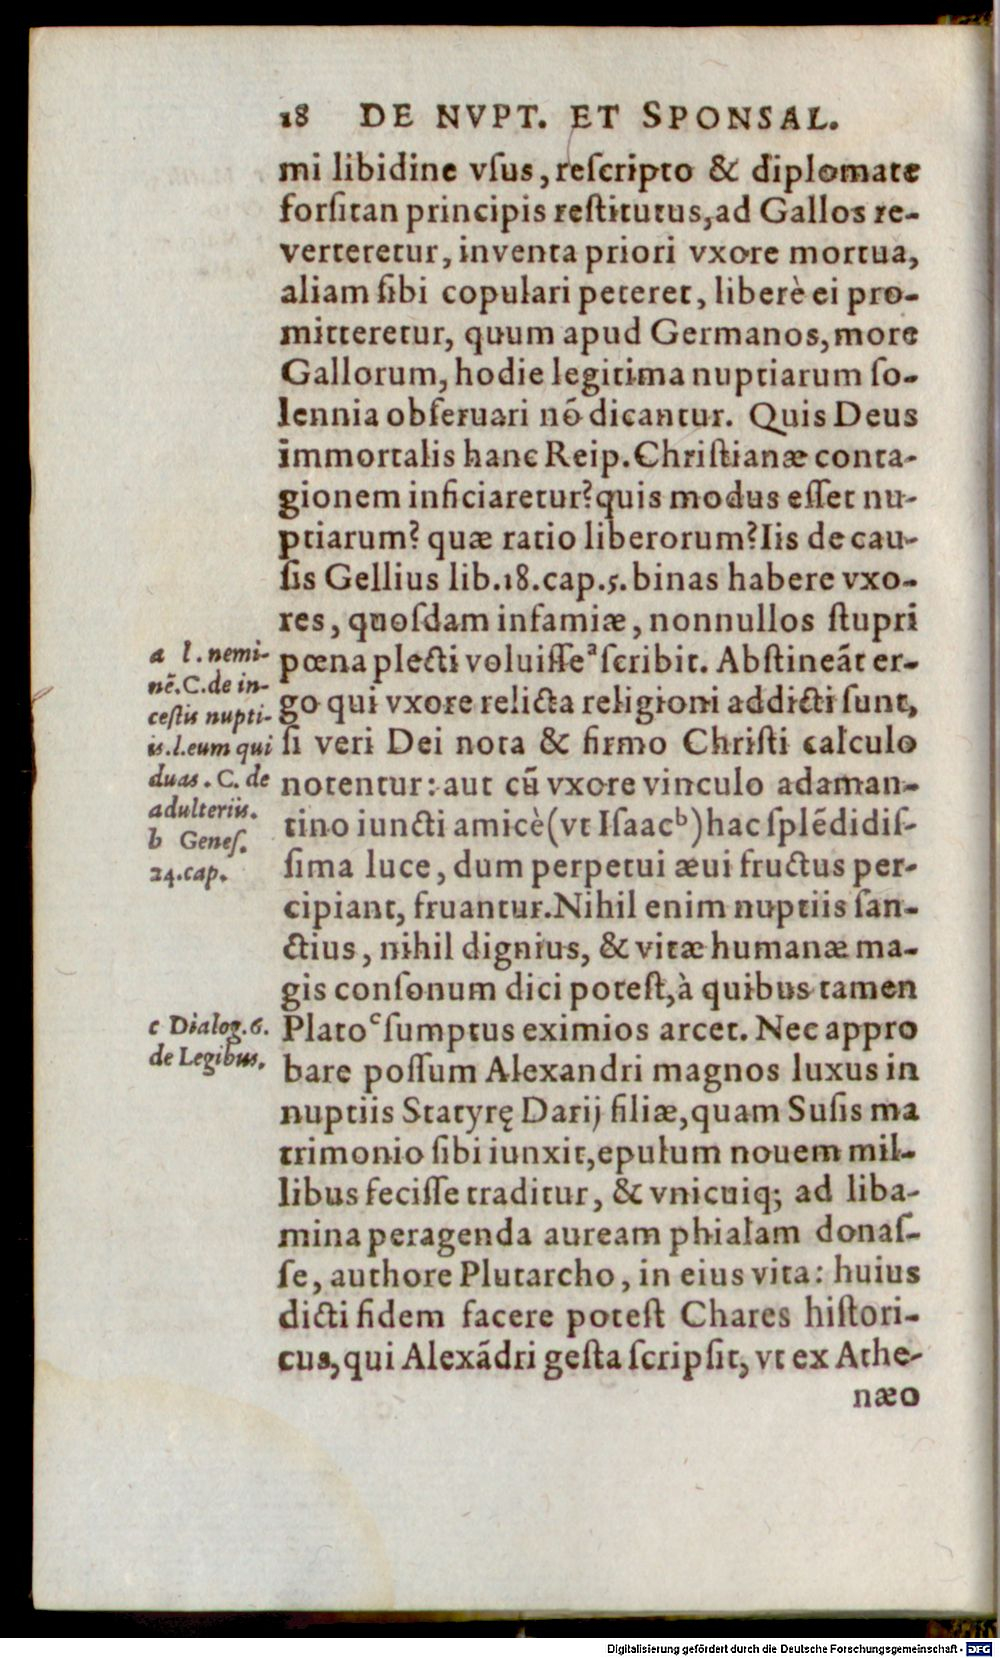 18 DE NVPT. ET SPONSAL.
mi libidine vſus, reſcripto & diplomate
forſitan principis reſtitutus, ad Gallos re-
verteretur, inventa priori vxore mortua,
aliam ſibi copulari peteret, liberè ei pro-
mitteretur, quum apud Germanos, more
Gallorum, hodie legitima nuptiarum ſo-
lennia obſeruari nō dicantur. Quis Deus
immortalis hanc Reip. Chriſtianæ conta-
gionem inficiaretur? quis modus eſſet nu-
ptiarum? quæ ratio liberorum? Iis de cau-
ſis Gellius lib. 18. cap. 5. binas habere vxo-
res, quoſdam infamiæ, nonnullos ſtupri
pœna plecti voluiſſe ᵃ ſcribit. Abſtineāt er-
go qui vxore relicta religioni addicti ſunt,
ſi veri Dei nota & firmo Chriſti calculo
notentur: aut cū vxore vinculo adaman-
tino iuncti amicè (vt Iſaac ᵇ) hac ſplēdidiſ-
ſima luce, dum perpetui æui fructus per-
cipiant, fruantur. Nihil enim nuptiis ſan-
ctius, nihil dignius, & vitæ humanæ ma-
gis conſonum dici poteſt, à quibus tamen
Plato ᶜ ſumptus eximios arcet. Nec appro
bare poſſum Alexandri magnos luxus in
nuptiis Statyrę Darij filiæ, quam Suſis ma
trimonio ſibi iunxit, epulum nouem mil-
libus feciſſe traditur, & vnicuiq; ad liba-
mina peragenda auream phialam donaſ-
ſe, authore Plutarcho, in eius vita: huius
dicti fidem facere poteſt Chares hiſtori-
cus, qui Alexādri geſta ſcripſit, vt ex Athe-
næo
a l. nemi-
nē. C. de in-
ceſtis nupti-
is. l. eum qui
duas. C. de
adulteriis.
b Geneſ.
24. cap.
c Dialog. 6.
de Legibus.
Digitalisierung gefördert durch die Deutsche Forschungsgemeinschaft - DFG